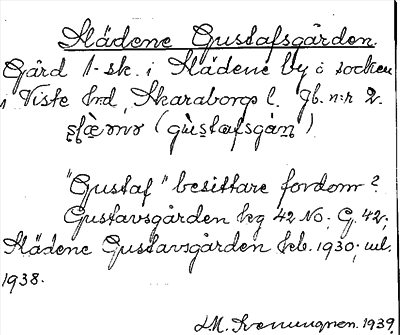 Slädene Gustafsgården.
Gård 1 sk. i Slädene by o socken
i Viste hrd, Skaraborgs l. Jb. n:r 2.
(gùs̱tafsgàṉ)
"Gustaf" besittare fordom?
Gustavsgården hg 42 NO; G. 42;
Slädene Gustavsgården heb. 1930;
1938.
1939.